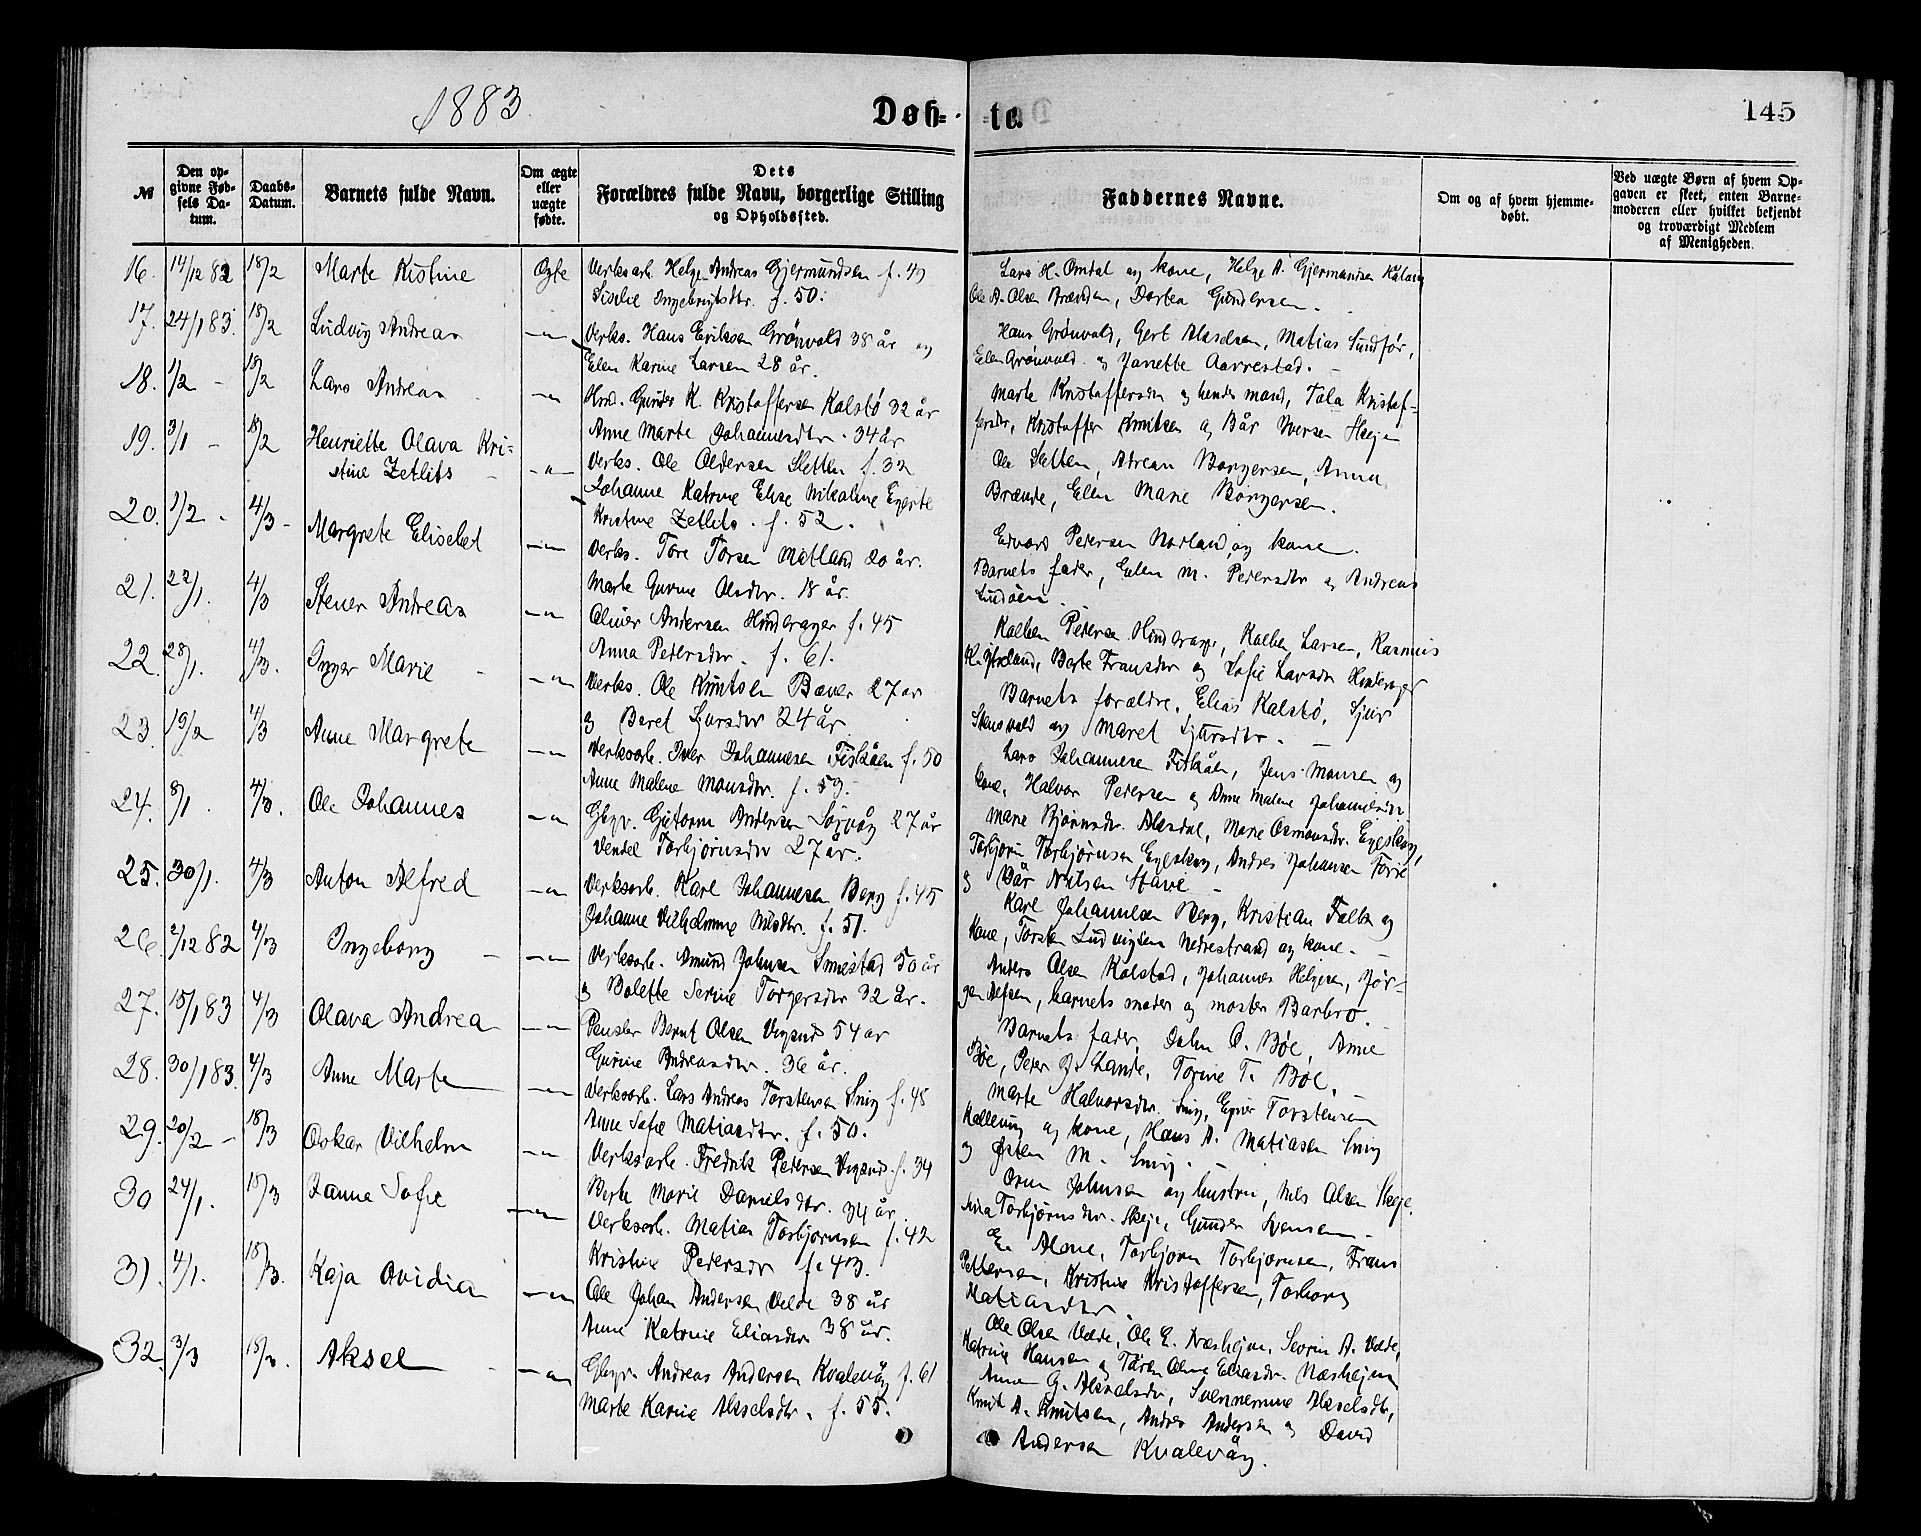 1883
Døb-
te.
145
№
Den op-
givne Fød-
sels Da-
tum.
Daabs-
Datum.
Barnets fulde Navn.
Om ægte
eller
uægte
fødte.
Dets
Forældres fulde Navn, borgerlige Stilling
og Opholdssted.
Faddernes Navne.
Om og af hvem hjemme-
døbt.
Ved uægte Børn af hvem Op-
gaven er skeet, enten Barne-
moderen eller hvilket bekjendt
og troværdigt Medlem
af Menigheden.
16. 14/12 82 18/2 Marte Kistine Ægte Verksarb. Helge Andreas Gjermundsen f. 49
Siselie Ingebrigtsdtr. f. 50.
Lars H. Omdal og kone, Helge A. Gjermundsen
Ole A. Olsen Brænden, Dortea Gundersen
17. 24/1 83. 18/2 Ludvig Andreas -"- Verks. Hans Eriksen Grönvold 38 år og
Elen Karine Larsen 28 år.
Hans Grönvold, Gert Akselsen, Matias Sundför,
Elen Grönvold og Janette Aarrestad. -
18. 1/2 - 18/2 Lars Andreas -"- Hmd. Gunder K. Kristoffersen Kalstö 32 år
Anne Marte Johannesdtr. 34 år
Marte Kristoffersdtr og hendes mand, Tala Kristof-
fersdtr, Kristoffer Knutsen og Bår Iversen Skeje
19. 3/1 - 18/2 Henriette Olava Kri-
stine Zetlits -"- Verks. Ole Oldersen Sletten f. 32
Johanne Katrine Elise Nikoline
Kristine Zetlits. f. 52.
Ole Sletten, Adrean Borgersen, Anna
Brænde, Elen Marie Borgersen.
20. 1/2 - 4/3 - Margrete Elisebet -"- Verks. Tore Torsen Matland 20 år.
Marte Gurine Olsdtr. 18 år.
Edvard Pedersen Norland og kone.
Barnets fader, Elen M. Pedersdtr og Andreas
21. 22/1. 4/3 Stener Andreas -"- Oliver Andersen Hinderager f. 45
Anna Pedersdtr. f. 61.
Kalben Pedersen Hinderager, Kalben Larsen, Rasmus
Berte Fransdtr og Sofie Larsdtr Hinderager
22. 28/1. 4/3. Inger Marie -"- Verks. Ole Knutsen Bæver 27 år
og Beret Sjursdtr 24 år
Barnets forældre, Elias Kalstö, Sjur
og Maret Sjursdtr. -
23. 19/2 4/3 Anne Margrete -"- Verksarb. Iver Johannesen Fiskåen f. 50
Anne Malene Monsdtr. f. 59.
Lars Johannesen Fiskåen, Jens Monsen og
kone, Halvor Pedersen og Anne Malene Johannesdtr.
24. 8/1. 4/3. Ole Johannes -"- Gbgr. Gutorm Andersen Sörvåg 27 år
Vendel Torbjörnsdtr 27 år.
Marie Björnsdtr. Alsdal, Marie Osmundsdtr. Eygeskog,
Torbjörn Torbjörnsen Eygeskog, Andres Johansen
og Bår Nilsen Stave -
25. 30/1. 4/3 Anton Alfred -"- Verksarb. Karl Johannesen Berg f. 45
Johanne Vilhelmine Nilsdtr. f. 51.
Karl Johannesen Berg, Kristian Falk og
kone, Torsten Ludvigsen Nedrestrand og kone. -
26. 2/12 82 4/3 Ingeborg -"- Verksarb. Amund Johnsen Smestad 50 år
og Bolette Serine Torgersdtr 32 år.
Anders Olsen Kolstad, Johannes Helgesen, Jör-
gen Alfsen, barnets moder og moster Barbro.
27. 15/1 83 4/3 Olava Andrea -"- Pensler Bernt Olsen Vigsnes 54 år
Gurine Andreasdtr. 36 år.
Barnets fader, John O. Böe, Anne
Böe, Peter B. Lande, Torine T. Böe.
28. 30/1 83. 4/3 Anne Marte -"- Verksarb. Lars Andreas Torstensen Snig f. 48
Anne Sofie Matiasdtr. f. 50.
Marte Halvorsdtr. Snig, Torstensen
og kone, Hans A. Matiasen Snig
og Östen M. Snig.
29. 20/2 - 18/3 Oskar Vilhelm -"- Verksarb. Fredrik Pedersen Vigsnes f. 34
Berte Marie Danielsdtr. 34 år.
Johnsen og hustru, Nils Olsen Skeje.
Torbjörnsdtr. Skeje, Gunder Svensen -
30 24/1. 18/3 Janna Sofie -"- Verksarb. Matias Torbjörnsen f. 42
Kristine Pedersdtr f. 43.
E. Alne, Torbjörn Torbjörnsen, Frans
Pettersen, Kristine Kristoffersen, Torborg
Matiasdtr.
31. 4/1. 18/3. Kaja Ovidia -"- Ole Johan Andersen Velde 38 år
Anne Katrine Eliasdtr 38 år.
Ole Olsen Velde, Ole E. Næshejm, Severin A. Velde,
Katrine Hansen og Eliasdtr. Næshejm
32. 3/3 18/3. Aksel -"- Gbgr. Andreas Andersen Kvalevåg f. 61
Marte Karine Akselsdtr. f. 55.
Anna G. Akselsdtr, Akselsdtr,
Knut A. Knutsen, Andres Andersen og David
Andersen Kvalevåg.